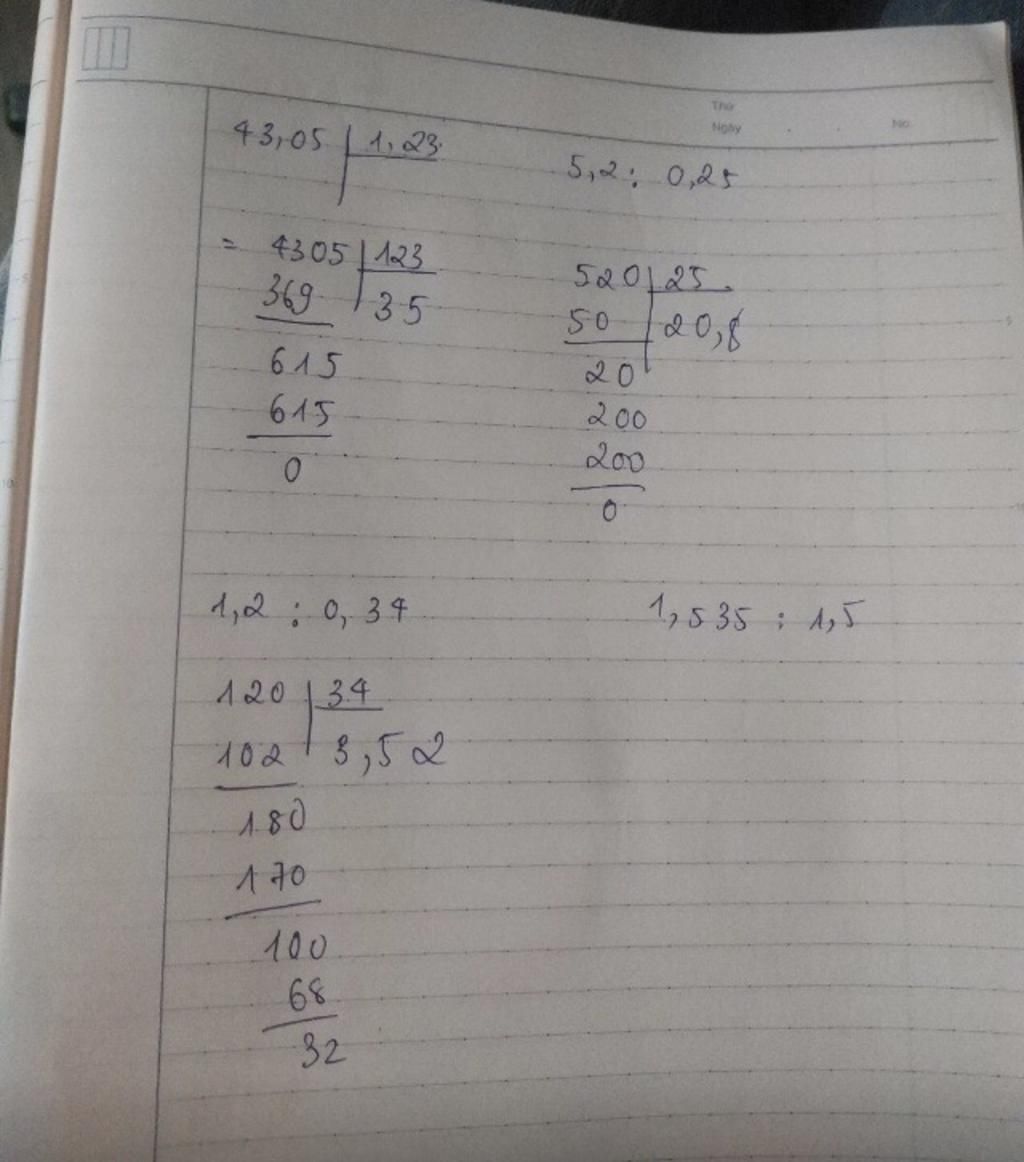 Thứ
Ngày . . No.
43,05 | 1,23
= 4305 | 123
369 | 35
615
615
0
5,2 : 0,25
520 | 25
50 | 20,8
20
200
200
0
1,2 : 0,34
120 | 34
102 | 3,52
180
170
100
68
32
1,535 : 1,5